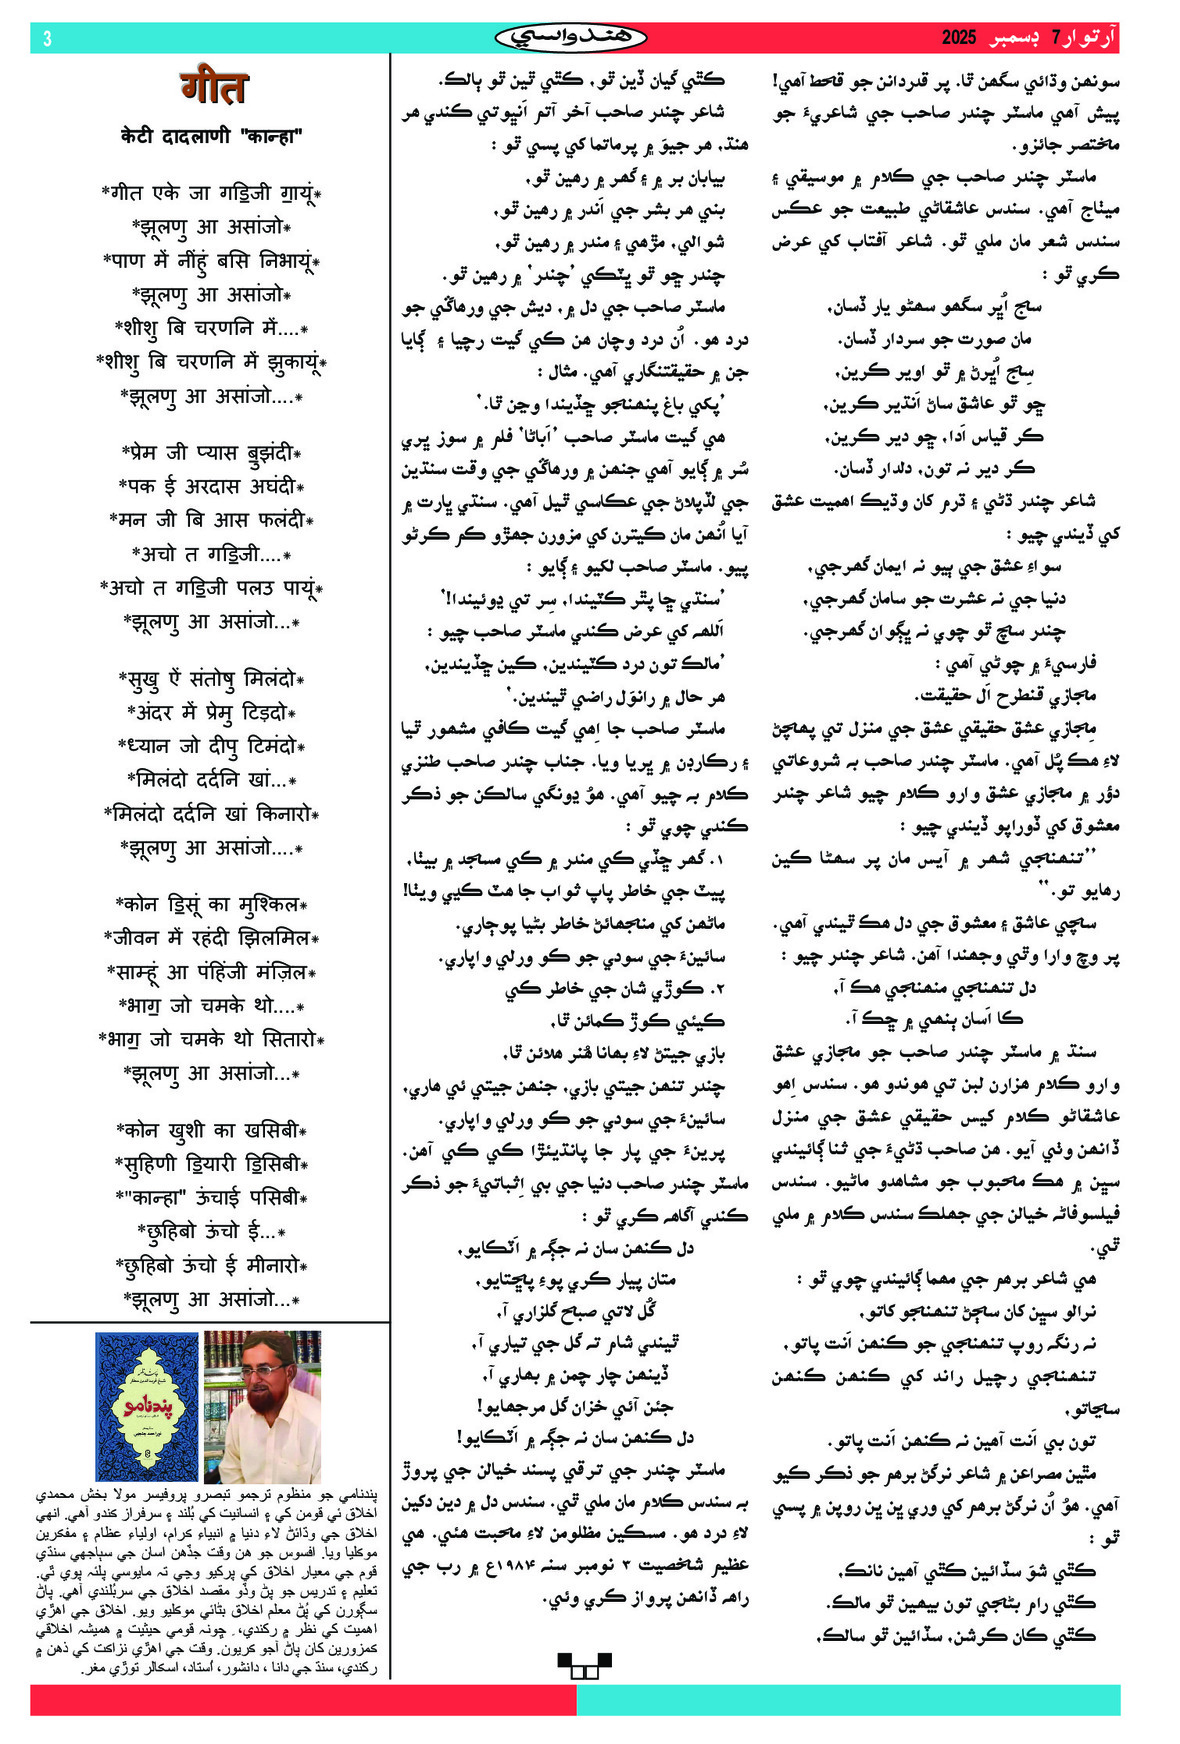 آرتوار 7 ڊسمبر 2025
هندواسي
3
سونهن وڌائي سگهن ٿا. پر قدردانن جو قحط آهي!
پيش آهي ماسٽر چندر صاحب جي شاعريءَ جو
مختصر جائزو.
ماسٽر چندر صاحب جي ڪلام ۾ موسيقي ۽
ميٺاج آهي. سندس عاشقاڻي طبيعت جو عڪس
سندس شعر مان ملي ٿو. شاعر آفتاب کي عرض
ڪري ٿو :
سج اُڀر سگهو سهڻو يار ڏسان,
مان صورت جو سردار ڏسان.
سِج اُڀرڻ ۾ ٿو اوير ڪرين,
ڇو ٿو عاشق ساڻ اَنڌير ڪرين,
ڪر قياس اَدا, ڇو دير ڪرين,
ڪر دير نہ تون, دلدار ڏسان.
شاعر چندر ڌڻي ۽ ڌرم کان وڌيڪ اهميت عشق
کي ڏيندي چيو :
سواءِ عشق جي ٻيو نہ ايمان گهرجي,
دنيا جي نہ عشرت جو سامان گهرجي,
چندر سچ ٿو چوي نہ ڀڳوان گهرجي.
فارسيءَ ۾ چوڻي آهي :
مجازي قنطرح اَل حقيقت.
مِجازي عشق حقيقي عشق جي منزل تي پهچڻ
لاءِ هڪ پُل آهي. ماسٽر چندر صاحب بہ شروعاتي
دؤر ۾ مجازي عشق وارو ڪلام چيو شاعر چندر
معشوق کي ڏوراپو ڏيندي چيو :
”تنهنجي شهر ۾ آيس مان پر سهڻا ڪين
رهايو تو.”
سچي عاشق ۽ معشوق جي دل هڪ ٿيندي آهي.
پر وچ وارا وٿي وجهندا آهن. شاعر چندر چيو :
دل تنهنجي منهنجي هڪ آ,
ڪا اَسان ٻنهي ۾ ڇڪ آ.
سنڌ ۾ ماسٽر چندر صاحب جو مجازي عشق
وارو ڪلام هزارن لبن تي هوندو هو. سندس اِهو
عاشقاڻو ڪلام کيس حقيقي عشق جي منزل
ڏانهن وٺي آيو. هن صاحب ڌڻيءَ جي ثنا ڳائيندي
سڀن ۾ هڪ محبوب جو مشاهدو ماڻيو. سندس
فيلسوفاڻہ خيالن جي جهلڪ سندس ڪلام ۾ ملي
ٿي.
هي شاعر برهم جي مهما ڳائيندي چوي ٿو :
نرالو سڀن کان سڄڻ تنهنجو کاتو,
نہ رنگہ روپ تنهنجي جو ڪنهن اَنت پاتو,
تنهنجي رچيل راند کي ڪنهن ڪنهن
سڃاتو,
تون بي اَنت آهين نہ ڪنهن اَنت پاتو.
مٿين مصراعن ۾ شاعر نرگڻ برهم جو ذڪر ڪيو
آهي. هوُ اُن نرگڻ برهم کي وري ڀن ڀن روپن ۾ پسي
ٿو :
ڪٿي شوَ سڏائين ڪٿي آهين نانڪ,
ڪٿي رام بڻجي تون بيهين ٿو مالڪ.
ڪٿي ڪان ڪرشن, سڏائين ٿو سالڪ,
ڪٿي گيان ڏين ٿو, ڪٿي ٿين ٿو ٻالڪ.
شاعر چندر صاحب آخر آتم اَنڀوتي ڪندي هر
هنڌ, هر جيوَ ۾ پرماتما کي پسي ٿو :
بيابان بر ۾ ۽ گهر ۾ رهين ٿو,
بني هر بشر جي اَندر ۾ رهين ٿو,
شوالي, مڙهي ۽ مندر ۾ رهين ٿو,
چندر ڇو ٿو ڀٽڪي ‘چندر’ ۾ رهين ٿو.
ماسٽر صاحب جي دل ۾, ديش جي ورهاڱي جو
درد هو. اُن درد وچان هن کي گيت رچيا ۽ ڳايا
جن ۾ حقيقتنگاري آهي. مثال :
‘پکي باغ پنهنجو ڇڏيندا وڃن ٿا.’
هي گيت ماسٽر صاحب ‘اَباڻا’ فلم ۾ سوز ڀري
سُر ۾ ڳايو آهي جنهن ۾ ورهاڱي جي وقت سنڌين
جي لڏپلاڻ جي عڪاسي ٿيل آهي. سنڌي ڀارت ۾
آيا اُنهن مان ڪيترن کي مزورن جهڙو ڪم ڪرڻو
پيو. ماسٽر صاحب لکيو ۽ ڳايو :
‘سنڌي ڇا پٿر ڪٽيندا, سِر تي ڍوئيندا!’
اَللهہ کي عرض ڪندي ماسٽر صاحب چيو :
‘مالڪ تون درد ڪٽيندين, ڪين ڇڏيندين,
هر حال ۾ رانوَل راضي ٿيندين.’
ماسٽر صاحب جا اِهي گيت ڪافي مشهور ٿيا
۽ رڪارڊن ۾ ڀريا ويا. جناب چندر صاحب طنزي
ڪلام بہ چيو آهي. هوُ ڍونگي سالڪن جو ذڪر
ڪندي چوي ٿو :
۱. گهر ڇڏي ڪي مندر ۾ ڪي مسجد ۾ بيٺا,
پيٽ جي خاطر پاپ ثواب جا هٽ ڪڍي ويٺا!
ماڻهن کي منجهائڻ خاطر بڻيا پوڄاري.
سائينءَ جي سودي جو ڪو ورلي واپاري.
۲. ڪوڙي شان جي خاطر ڪي
ڪيئي ڪوڙ ڪمائن ٿا,
بازي جيتڻ لاءِ بهانا هُنر هلائن ٿا,
چندر تنهن جيتي بازي, جنهن جيتي ئي هاري,
سائينءَ جي سودي جو ڪو ورلي واپاري.
پرينءَ جي پار جا پانڌيئڙا ڪي ڪي آهن.
ماسٽر چندر صاحب دنيا جي بي اِثباتيءَ جو ذڪر
ڪندي آگاهہ ڪري ٿو :
دل ڪنهن سان نہ جڳہ ۾ اَٽڪايو,
متان پيار ڪري پوءِ پڇتايو,
گُل لاٿي صبح گلزاري آ,
ٿيندي شام تہ گل جي تياري آ,
ڏينهن چار چمن ۾ بهاري آ,
جئن آئي خزان گل مرجهايو!
دل ڪنهن سان نہ جڳہ ۾ اَٽڪايو!
ماسٽر چندر جي ترقي پسند خيالن جي پروڙ
بہ سندس ڪلام مان ملي ٿي. سندس دل ۾ دين دکين
لاءِ درد هو. مسڪين مظلومن لاءِ محبت هئي. هي
عظيم شخصيت ۳ نومبر سنہ ۱۹۸۴ع ۾ رب جي
راهہ ڏانهن پرواز ڪري وئي.
गीत
केटी दादलाणी "कान्हा"
*गीत एके जा गॾिजी ॻायूं*
*झूलणु आ असांजो*
*पाण में नींहुं बसि निभायूं*
*झूलणु आ असांजो*
*शीशु बि चरणनि में....*
*शीशु बि चरणनि में झुकायूं*
*झूलणु आ असांजो....*
*प्रेम जी प्यास ॿुझंदी*
*पक ई अरदास अघंदी*
*मन जी बि आस फलंदी*
*अचो त गॾिजी....*
*अचो त गॾिजी पलउ पायूं*
*झूलणु आ असांजो...*
*सुखु ऐं संतोषु मिलंदो*
*अंदर में प्रेमु टिड़दो*
*ध्यान जो दीपु टिमंदो*
*मिलंदो दर्दनि खां...*
*मिलंदो दर्दनि खां किनारो*
*झूलणु आ असांजो....*
*कोन ॾिसूं का मुश्किल*
*जीवन में रहंदी झिलमिल*
*साम्हूं आ पंहिंजी मंज़िल*
*भाॻ जो चमके थो....*
*भाॻ जो चमके थो सितारो*
*झूलणु आ असांजो...*
*कोन खुशी का खसिबी*
*सुहिणी ॾियारी ॾिसिबी*
*"कान्हा" ऊंचाई पसिबी*
*छुहिबो ऊंचो ई...*
*छुहिबो ऊंचो ई मीनारो*
*झूलणु आ असांजो...*
پندنامو
پندنامي جو منظوم ترجمو تبصرو پروفيسر مولا بخش محمدي
اخلاق ئي قومن کي ۽ انسانيت کي بُلند ۽ سرفراز ڪندو آهي. انهي
اخلاق جي وڌائڻ لاءِ دنيا ۾ انبياء ڪرام، اولياء عظام ۽ مفڪرين
موڪليا ويا. افسوس جو هن وقت جڏهن اسان جي سڀاڃهي سنڌي
قوم جي معيار اخلاق کي پرکيو وڃي تہ مايوسي پلئہ پوي ٿي.
تعليم ۽ تدريس جو پڻ وڏو مقصد اخلاق جي سربُلندي آهي. پاڻ
سڳورن کي پُڻ معلم اخلاق بڻائي موڪليو ويو. اخلاق جي اهڙي
اهميت کي نظر ۾ رکندي، ڇوتہ قومي حيثيت ۾ هميشہ اخلاقي
ڪمزورين کان پاڻ آجو ڪريون. وقت جي اهڙي نزاڪت کي ذهن ۾
رکندي، سنڌ جي دانا ، دانشور، اُستاد، اسڪالر توڙي مفر.